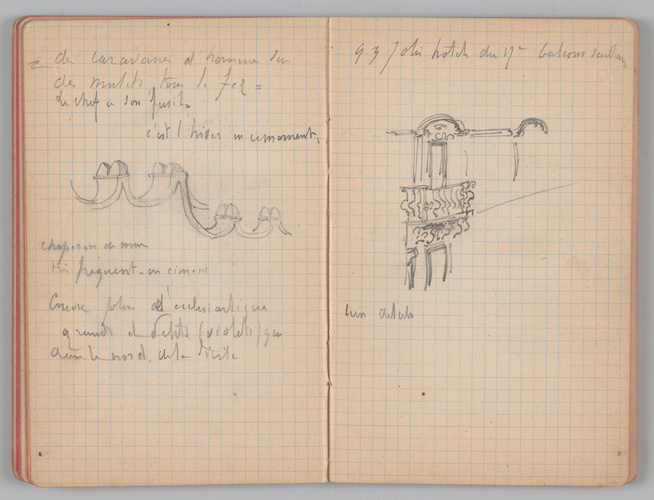 des caravanes d'hommes sur
des mulets, tous le fez =
le chef a son fusil =
c'est l'hiver en ce moment,
chaperon de mur
très fréquent - en ciment
Encore plus d'ecclésiastiques
grands et petits (violets) que
dans le nord de la Sicile
9.3 Jolis hotels du 17e balcons
un detail